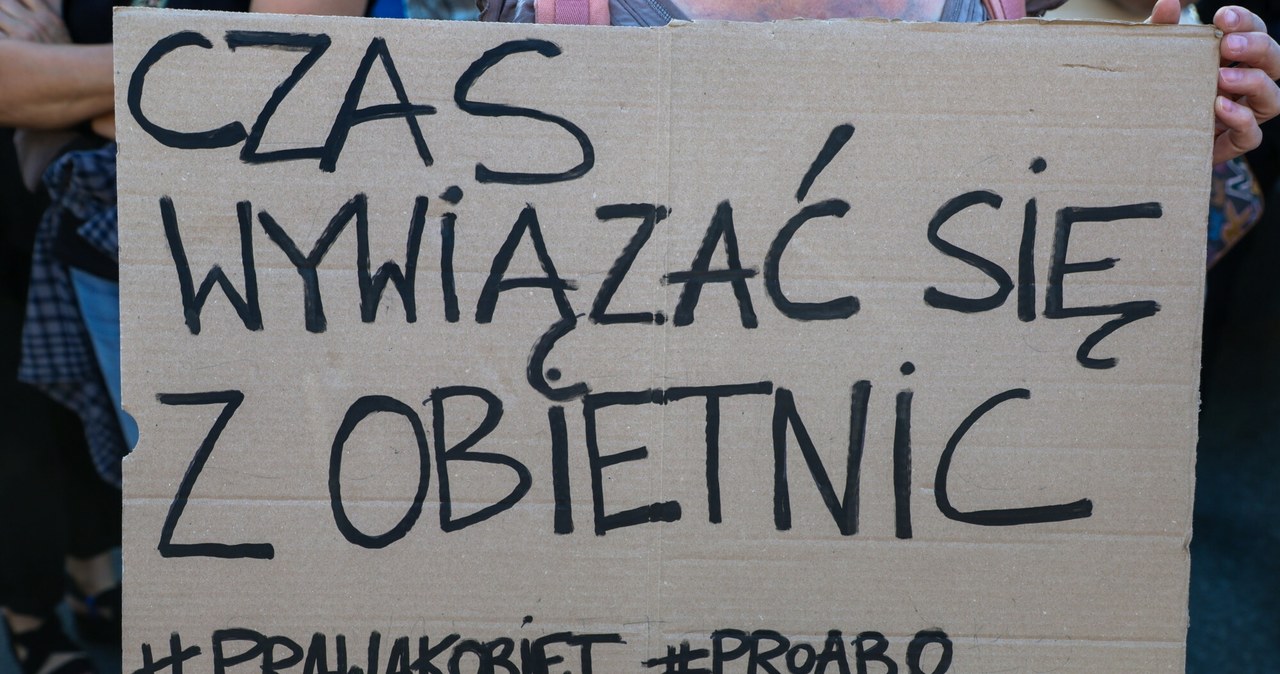 CZAS
WYWIĄZAĆ SIĘ
Z OBIETNIC
#PRAWAKOBIET #PROABO